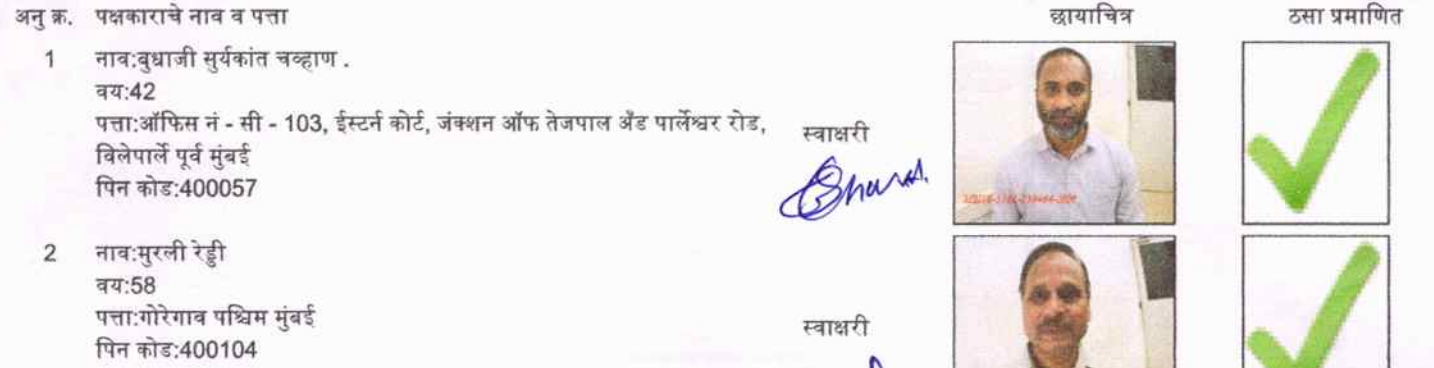 अनु क्र. पक्षकाराचे नाव व पत्ता छायाचित्र ठसा प्रमाणित
1 नाव:बुधाजी सुर्यकांत चव्हाण .
वय:42
पत्ता:ऑफिस नं - सी - 103, ईस्टर्न कोर्ट, जंक्शन ऑफ तेजपाल अँड पार्लेश्वर रोड,
विलेपार्ले पूर्व मुंबई
पिन कोड:400057
स्वाक्षरी
2 नाव:मुरली रेड्डी
वय:58
पत्ता:गोरेगाव पश्चिम मुंबई
पिन कोड:400104
स्वाक्षरी